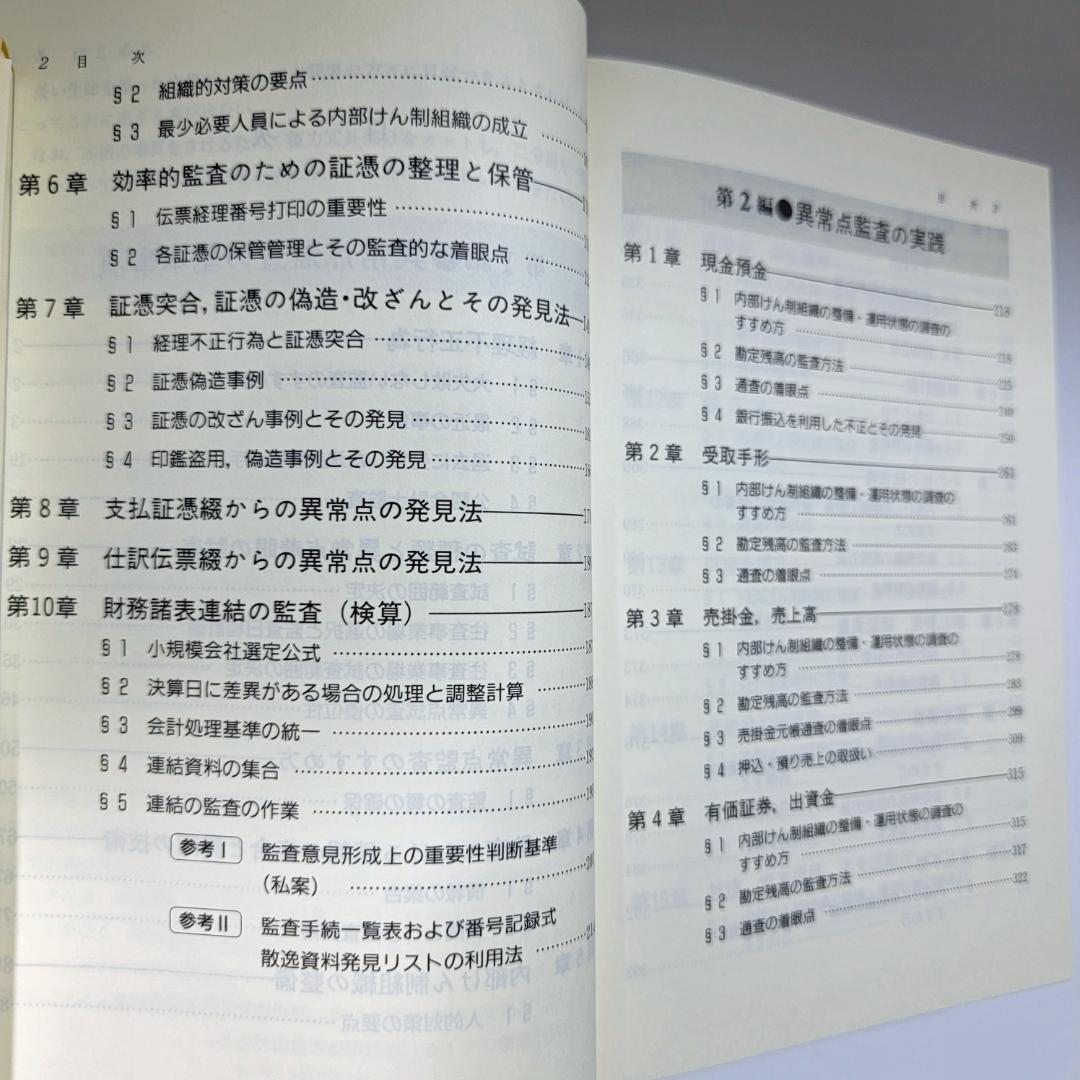 2 目 次
§2 組織的対策の要点
§3 最少必要人員による内部けん制組織の成立
第6章 効率的監査のための証憑の整理と保管
§1 伝票経理番号打印の重要性
§2 各証憑の保管管理とその監査的な着眼点
第7章 証憑突合,証憑の偽造・改ざんとその発見法
§1 経理不正行為と証憑突合
§2 証憑偽造事例
§3 証憑の改ざん事例とその発見
§4 印鑑盗用,偽造事例とその発見
第8章 支払証憑綴からの異常点の発見法
第9章 仕訳伝票綴からの異常点の発見法
第10章 財務諸表連結の監査(検算)
§1 小規模会社選定公式
§2 決算日に差異がある場合の処理と調整計算
§3 会計処理基準の統一
§4 連結資料の集合
§5 連結の監査の作業
参考Ⅰ 監査意見形成上の重要性判断基準
(私案)
参考Ⅱ 監査手続一覧表および番号記録式
散逸資料発見リストの利用法
第2編●異常点監査の実践
第1章 現金預金 218
§1 内部けん制組織の整備・運用状態の調査の
すすめ方 218
§2 勘定残高の監査方法 225
§3 通査の着眼点 240
§4 銀行振込を利用した不正とその発見 250
第2章 受取手形 261
§1 内部けん制組織の整備・運用状態の調査の
すすめ方 261
§2 勘定残高の監査方法 263
§3 通査の着眼点 274
第3章 売掛金,売上高 278
§1 内部けん制組織の整備・運用状態の調査の
すすめ方 278
§2 勘定残高の監査方法 283
§3 売掛金元帳通査の着眼点 299
§4 押込・預り売上の取扱い 309
第4章 有価証券,出資金 315
§1 内部けん制組織の整備・運用状態の調査の
すすめ方 315
§2 勘定残高の監査方法 317
§3 通査の着眼点 322